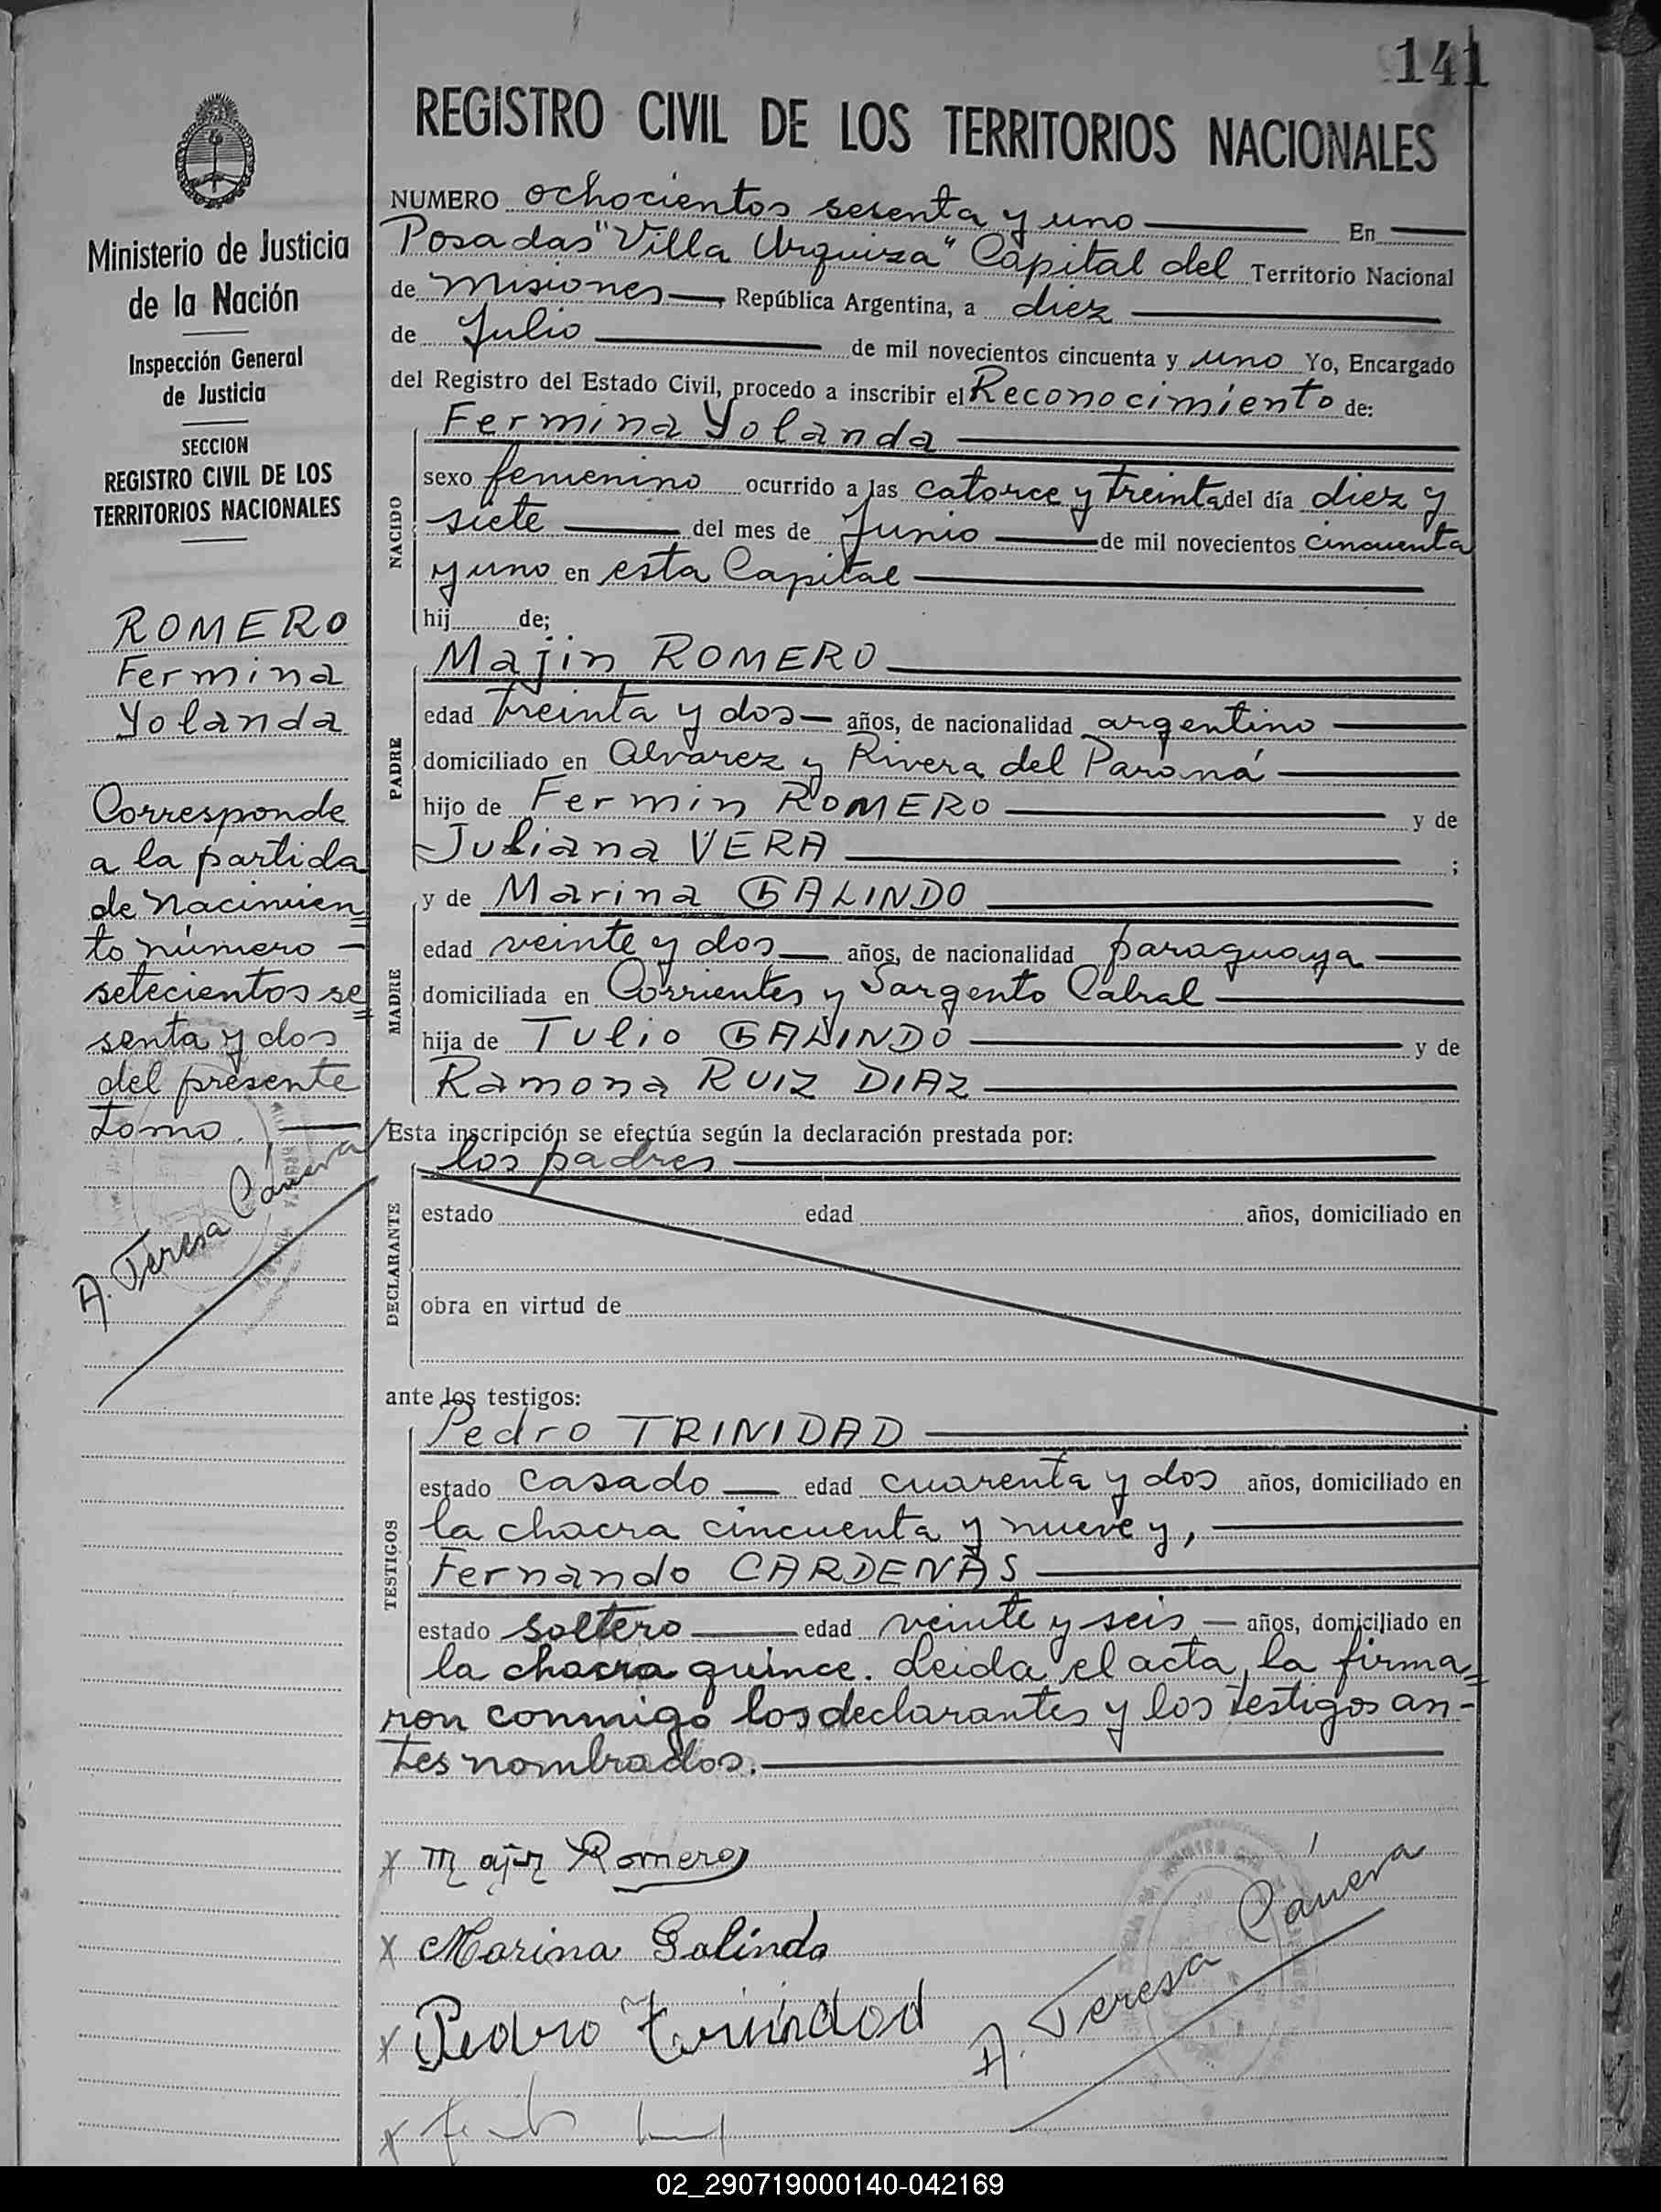 141
REGISTRO CIVIL DE LOS TERRITORIOS NACIONALES
Ministerio de Justicia
de la Nación
Inspección General
de Justicia
SECCION
REGISTRO CIVIL DE LOS
TERRITORIOS NACIONALES
ROMERO
Fermina
Yolanda
Corresponde
a la partida
de Nacimien=
to número —
setecientos se=
senta y dos
del presente
tomo. —
A. Teresa Cánera
NUMERO ochocientos sesenta y uno — En —
Posadas "Villa Urquiza" Capital del Territorio Nacional
de Misiones —, República Argentina, a diez —
de Julio — de mil novecientos cincuenta y uno Yo, Encargado
del Registro del Estado Civil, procedo a inscribir el Reconocimiento de:
NACIDO
Fermina Yolanda —
sexo femenino ocurrido a las catorce y treinta del día diez y
siete — del mes de Junio — de mil novecientos cincuenta
y uno en esta Capital —
hij de;
PADRE
Majin ROMERO —
edad treinta y dos — años, de nacionalidad argentino —
domiciliado en Alvarez y Rivera del Paraná —
hijo de Fermin ROMERO — y de
Juliana VERA — ;
MADRE
y de Marina GALINDO —
edad veinte y dos — años, de nacionalidad paraguaya —
domiciliada en Corrientes y Sargento Cabral —
hija de Tulio GALINDO — y de
Ramona RUIZ DIAZ —
Esta inscripción se efectúa según la declaración prestada por:
DECLARANTE
los padres —
estado edad años, domiciliado en
obra en virtud de
ante los testigos:
TESTIGOS
Pedro TRINIDAD —
estado casado — edad cuarenta y dos años, domiciliado en
la chacra cincuenta y nueve y, —
Fernando CARDENAS —
estado soltero — edad veinte y seis — años, domiciliado en
la chacra quince. Leida el acta, la firma=
ron conmigo los declarantes y los testigos an-
tes nombrados. —
x Majin Romero
x Marina Galindo
x Pedro Trinidad
A. Teresa Cánera
x
02_290719000140-042169